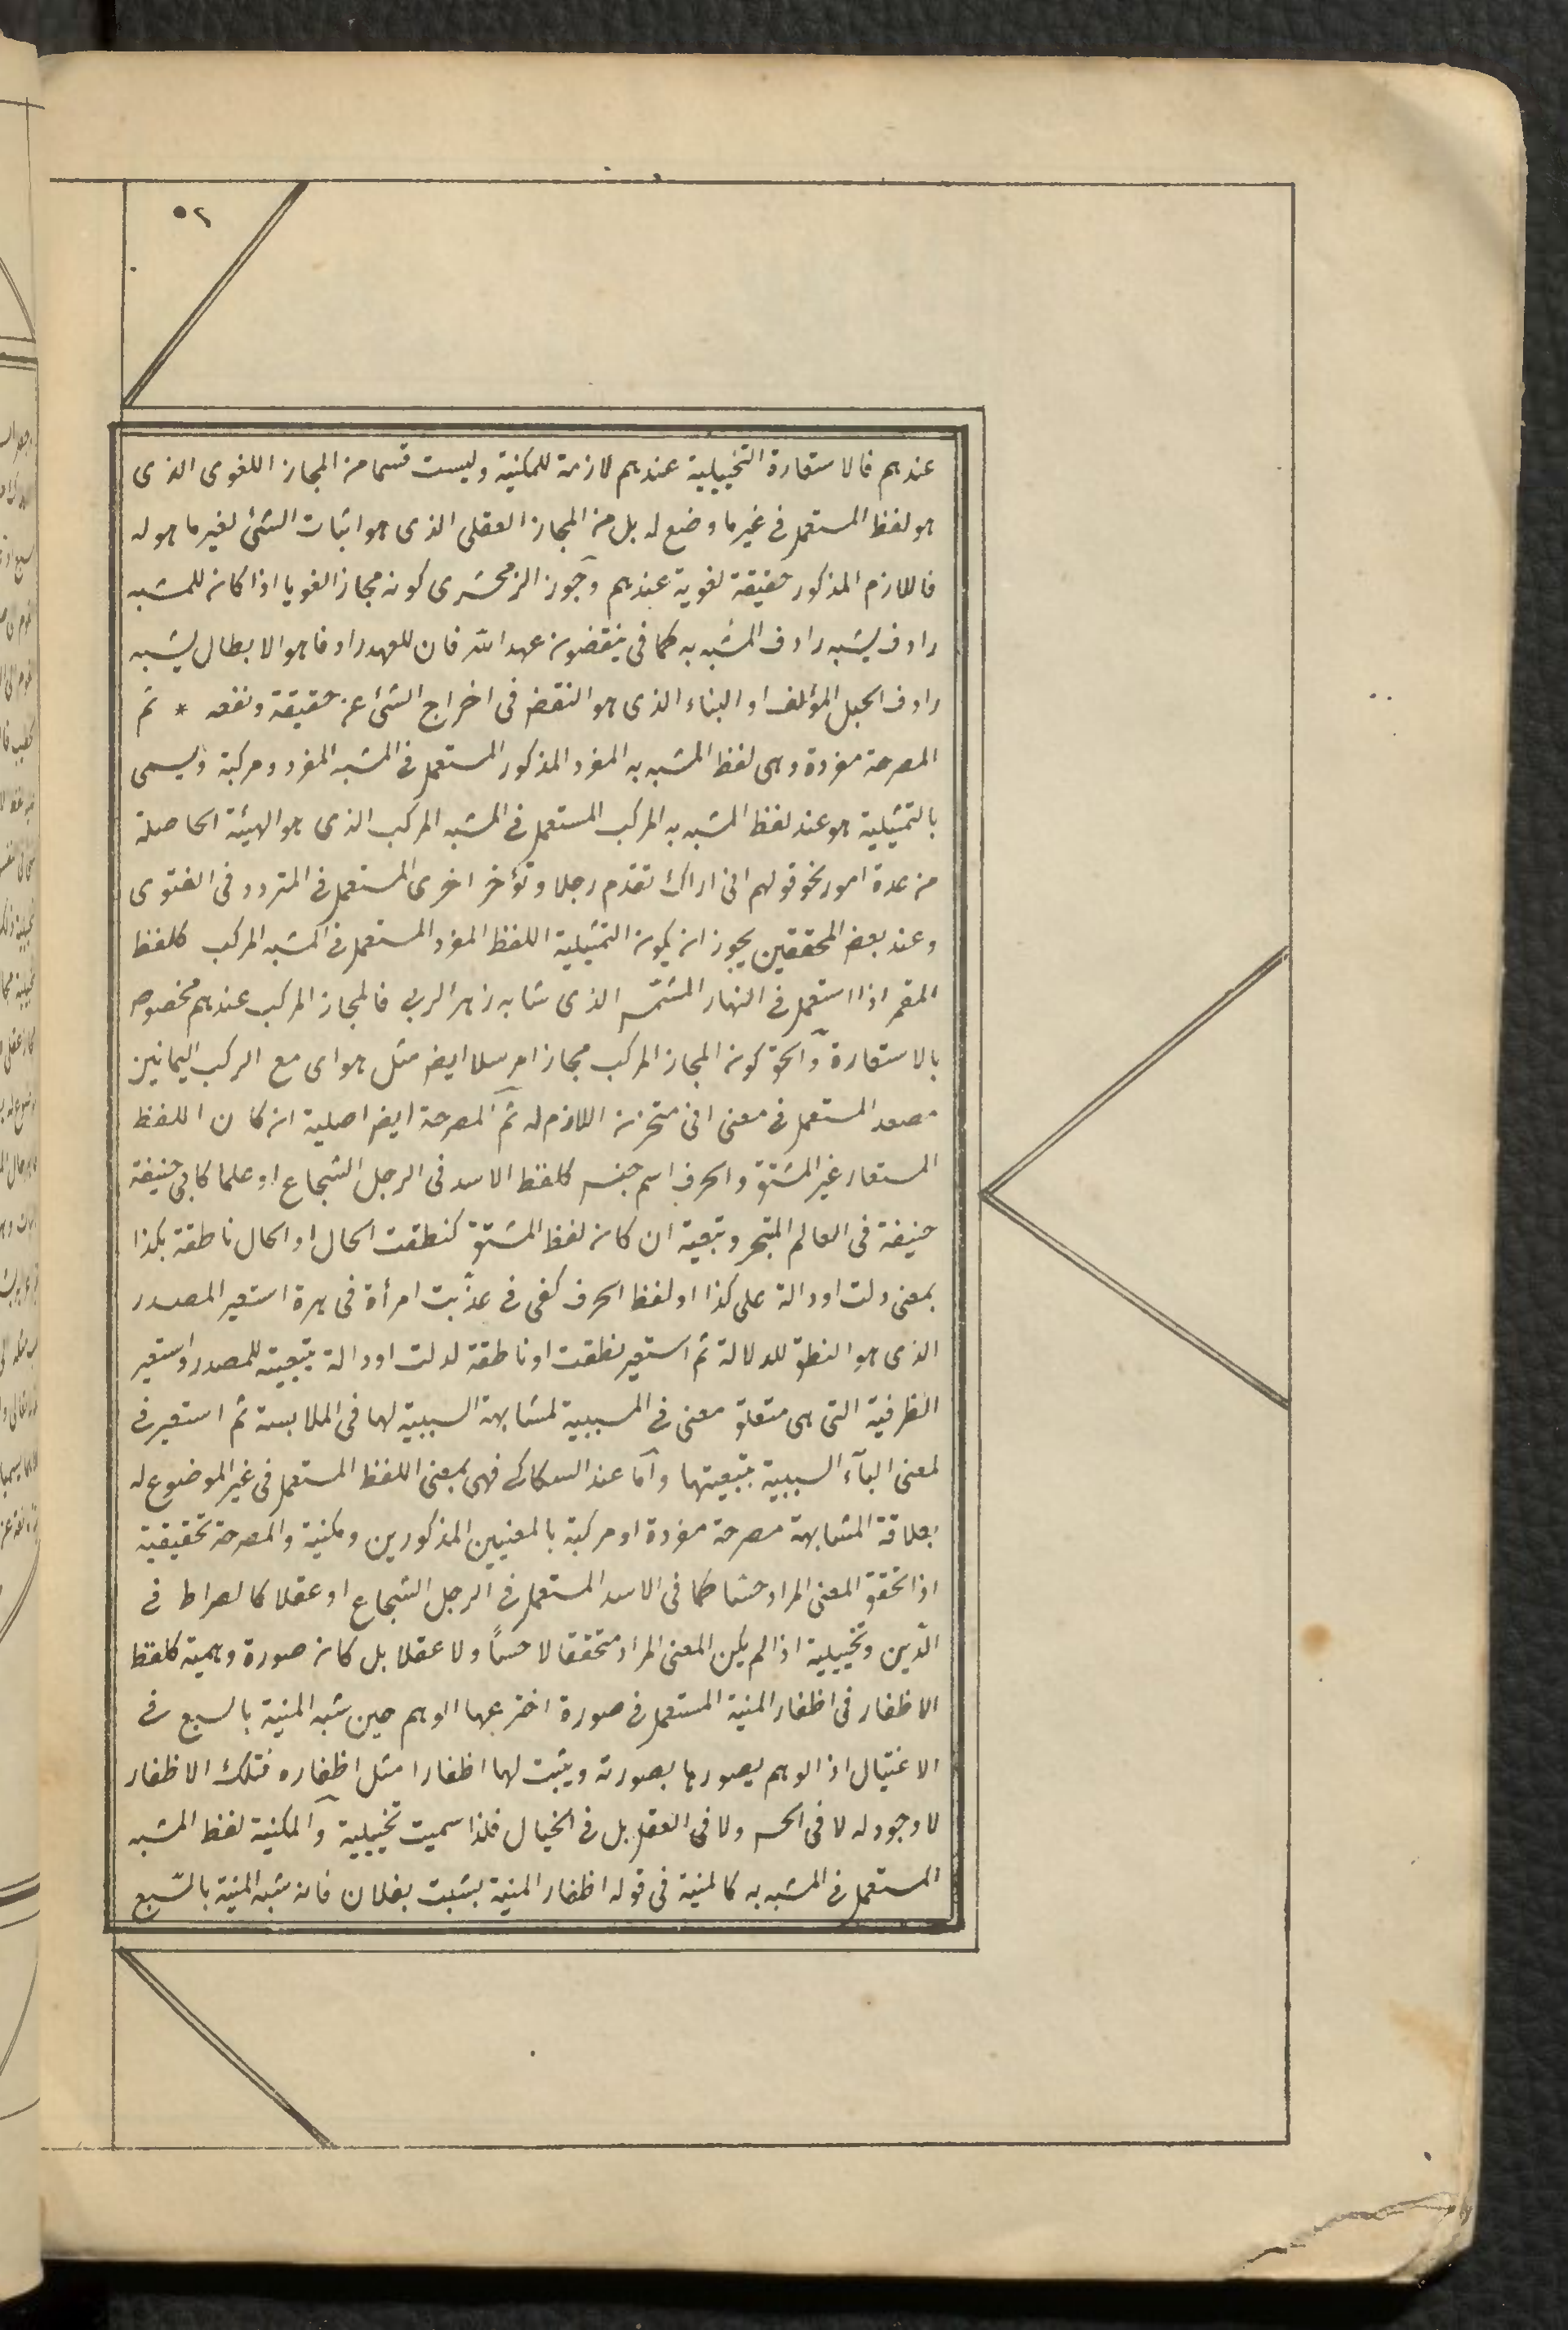 ٥٢
عندهم فالاستعارة التخييلية عندهم لازمة للمكنية وليست قسما من المجاز اللغوى الذى
هو لفظ المستعمل فى غير ما وضع له بل من المجاز العقلى الذى هو اثبات الشئ لغير ما هو له
فاللازم المذكور حقيقة لغوية عندهم وجوز الزمخشرى كونه مجازا لغويا اذا كان للمشبه
رادف يشبه رادف المشبه به كما فى ينقضون عهد الله فان للعهد رادفا هو الابطال يشبه
رادف الحبل المؤلف او البناء الذى هو النقض فى اخراج الشئ عن حقيقة ونفعه * ثم
المصرحة مفردة وهى لفظ المشبه به المفرد المذكور المستعمل فى المشبه المفرد ومركبة ويسمى
بالتمثيلية هو عند لفظ المشبه به المركب المستعمل فى المشبه المركب الذى هو الهيئة الحاصلة
من عدة امور نحو قولهم انى اراك تقدم رجلا وتؤخر اخرى المستعمل فى المتردد فى الفتوى
وعند بعض المحققين يجوز ان يكون التمثيلية اللفظ المفرد المستعمل فى المشبه المركب كلفظ
المقمر اذا استعمل فى النهار المشمس الذى شابه زهر الربى فالمجاز المركب عندهم مخصوص
بالاستعارة والحق كون المجاز المركب مجازا مرسلا ايض مثل هواى مع الركب اليمانين
مصعد المستعمل فى معنى انى متحزن اللازم له ثم المصرحة ايض اصلية ان كان اللفظ
المستعار غير المشتق والحرف اسم جنس كلفظ الاسد فى الرجل الشجاع او علما كابى حنيفة
حنيفة فى العالم المتبحر وتبعية ان كان لفظ المشتق كنطقت الحال او الحال ناطقة بكذا
بمعنى دلت او دالة على كذا او لفظ الحرف كفى فى عذّبت امرأة فى هرة استعير المصدر
الذى هو النطق للدلالة ثم استعير نطقت او ناطقة لدلت او دالة بتبعية للمصدر واستعير
الظرفية التى هى متعلق معنى فى المسببية لمشابهة السببية لها فى الملابسة ثم استعير فى
لمعنى البآء السببية بتبعيتها وأما عند السكاكى فهى بمعنى اللفظ المستعمل فى غير الموضوع له
بعلاقة المشابهة مصرحة مفردة او مركبة بالمعنيين المذكورين ومكنية والمصرحة تحقيقية
اذا تحقق المعنى المراد حسّا كما فى الاسد المستعمل فى الرجل الشجاع او عقلا كالصراط فى
الدّين وتخييلية اذا لم يكن المعنى المراد متحققا لا حساً ولا عقلا بل كان صورة وهمية كلفظ
الاظفار فى اظفار المنية المستعمل فى صورة اخترعها الوهم حين شبه المنية بالسبع فى
الاغتيال اذ الوهم يصورها بصورته ويثبت لها اظفارا مثل اظفاره فتلك الاظفار
لا وجود له لا فى الحس ولا فى العقل بل فى الخيال فلذا سميت تخييلية والمكنية لفظ المشبه
المستعمل فى المشبه به كالمنية فى قوله اظفار المنية نشبت بفلان فانه شبه المنية بالسّبع